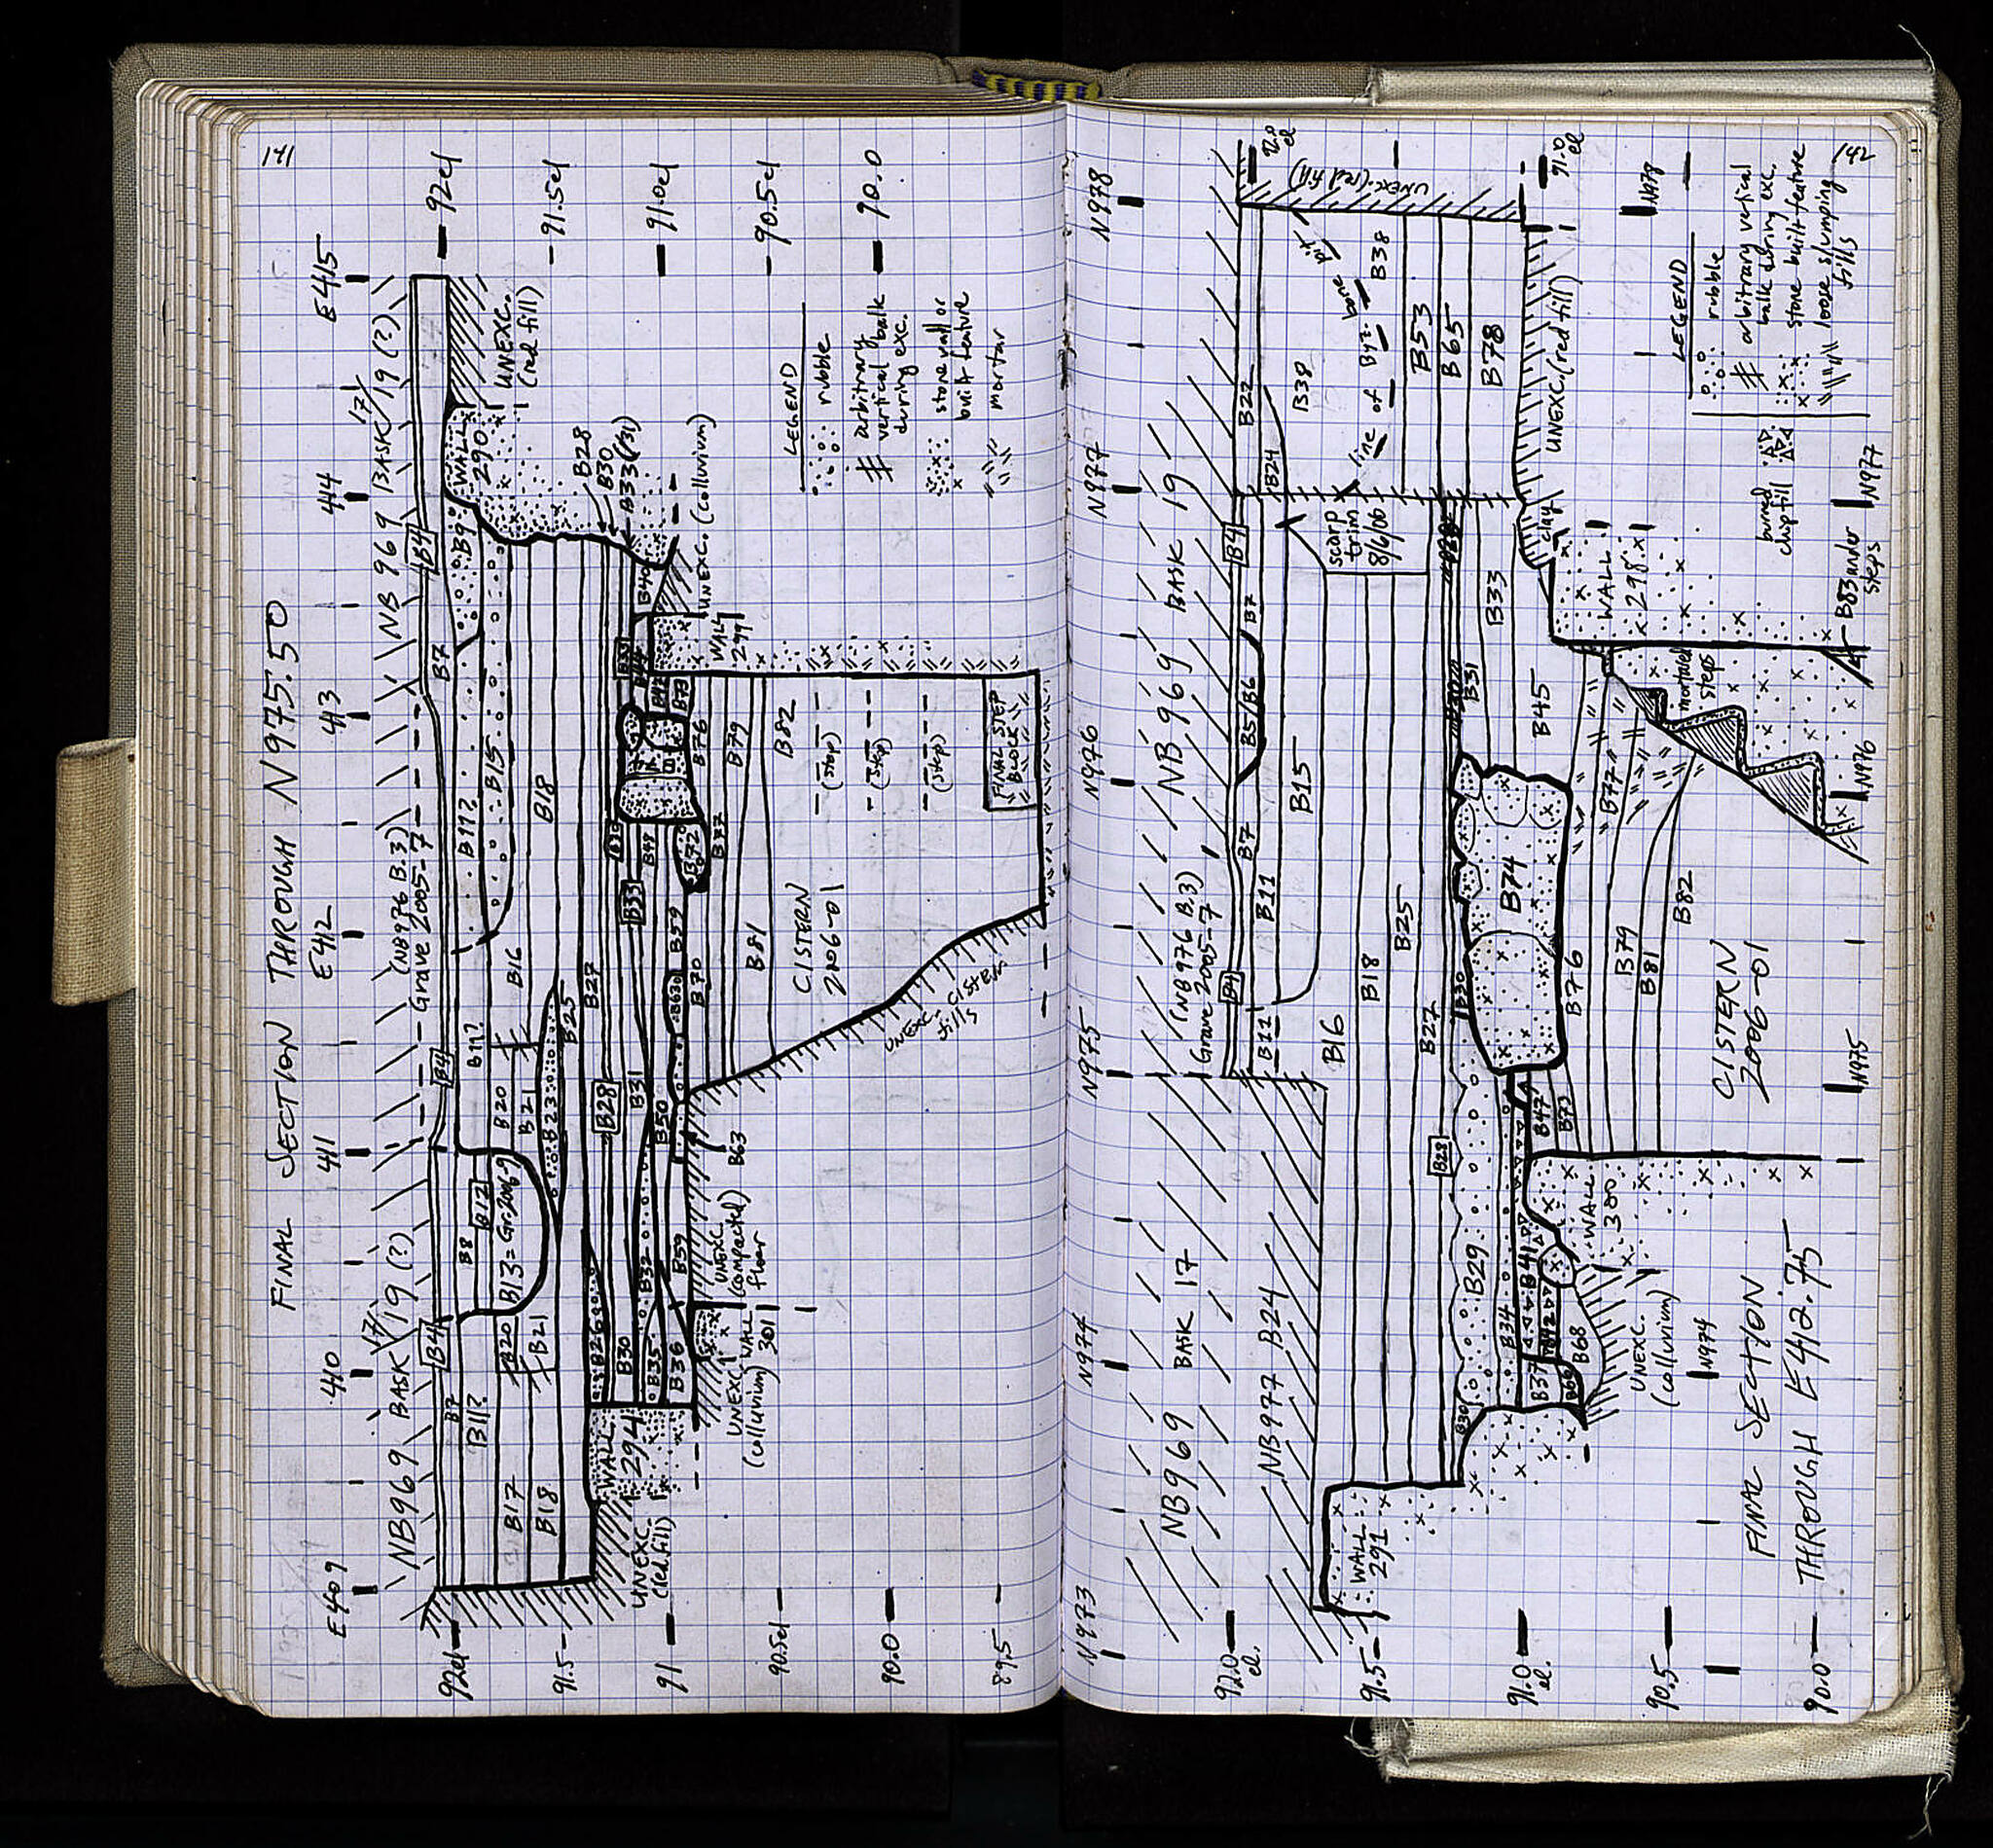 141
FINAL SECTION THROUGH N975.50
E409
410
411
E412
413
414
E415
NB969 BASK 19 (?)
(NB976 B.3)
Grave 2005-7
NB 969 BASK 19 (?)
17
17
92el
91.5
91
90.5el
90.0
89.5
92el
91.5el
91.0el
90.5el
90.0
B4
B4
B4
B7
B7
B8
B9
B11?
B11?
B11?
B12
B13 = Gr. 2006-9
B15
B16
B17
B18
B18
B20
B20
B21
B21
B23
B25
B26
B27
B28
B28
B30
B30
B31
B32
B33
B33 (/31)
B35
B36
B40
B48
B50
B59
B59
B63
B63
B70
B72
B73
B76
B77
B79
B81
B82
WALL 290
UNEXC. (red fill)
WALL 294
UNEXC. (red fill)
UNEXC. (colluvium)
WALL 301
UNEXC. (compacted) floor
UNEXC. (colluvium)
WALL 299
CISTERN 2006-01
UNEXC. cistern fills
(step)
(step)
(step)
FINAL STEP BLOCK
LEGEND
rubble
arbitrary vertical balk during exc.
stone wall or built feature
mortar
142
N973
N974
N975
N976
N977
N978
NB969 BASK 17
NB977 B24
(NB976 B.3)
Grave 2005-7
NB 969 BASK 19
92.0 el.
91.5
91.0 el.
90.5
90.0
92.0 el
91.0 el
B4
B4
B5/B6
B7
B7
B11
B11
B15
B16
B18
B22
B24
B25
B27
B28
B29
B30
B30
B31
B33
B34
B37
B38
B38
B41
B42
B45
B47
B53
B65
B68
B69
B73
B74
B76
B77
B78
B79
B81
B82
line of Byz. bone pit
scarp trim 8/6/06
UNEXC. (red fill)
UNEXC. (red fill)
clay
WALL 291
WALL 298
WALL 300
UNEXC. (colluvium)
mortared steps
B83 under steps
CISTERN 2006-01
N974
N975
N976
N977
N978
LEGEND
rubble
arbitrary vertical balk during exc.
stone built feature
loose slumping fills
burned chip fill
FINAL SECTION
THROUGH E412.75